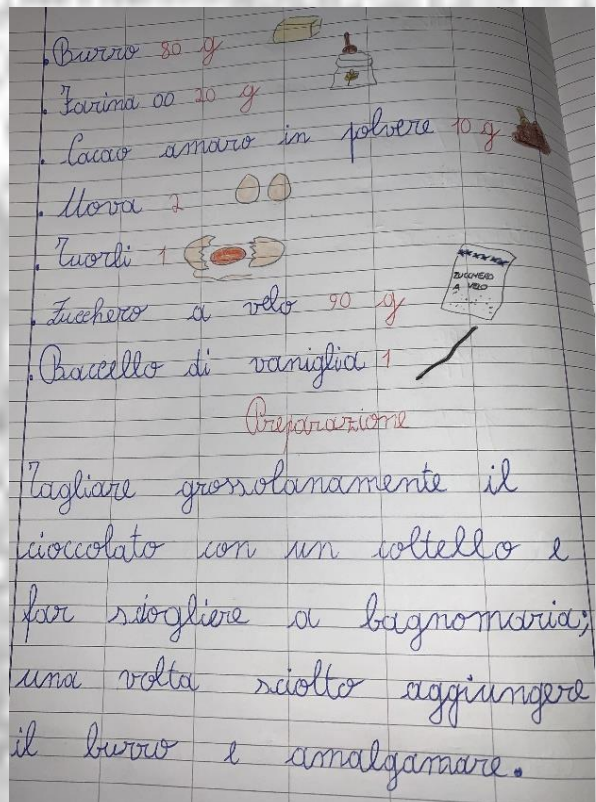 . Burro 80 g
. Farina 00 20 g
. Cacao amaro in polvere 10 g
. Uova 2
. Tuorli 1
. Zucchero a velo 90 g
ZUCCHERO
A VELO
. Baccello di vaniglia 1
Preparazione
Tagliare grossolanamente il
cioccolato con un coltello e
far sciogliere a bagnomaria;
una volta sciolto aggiungere
il burro e amalgamare.